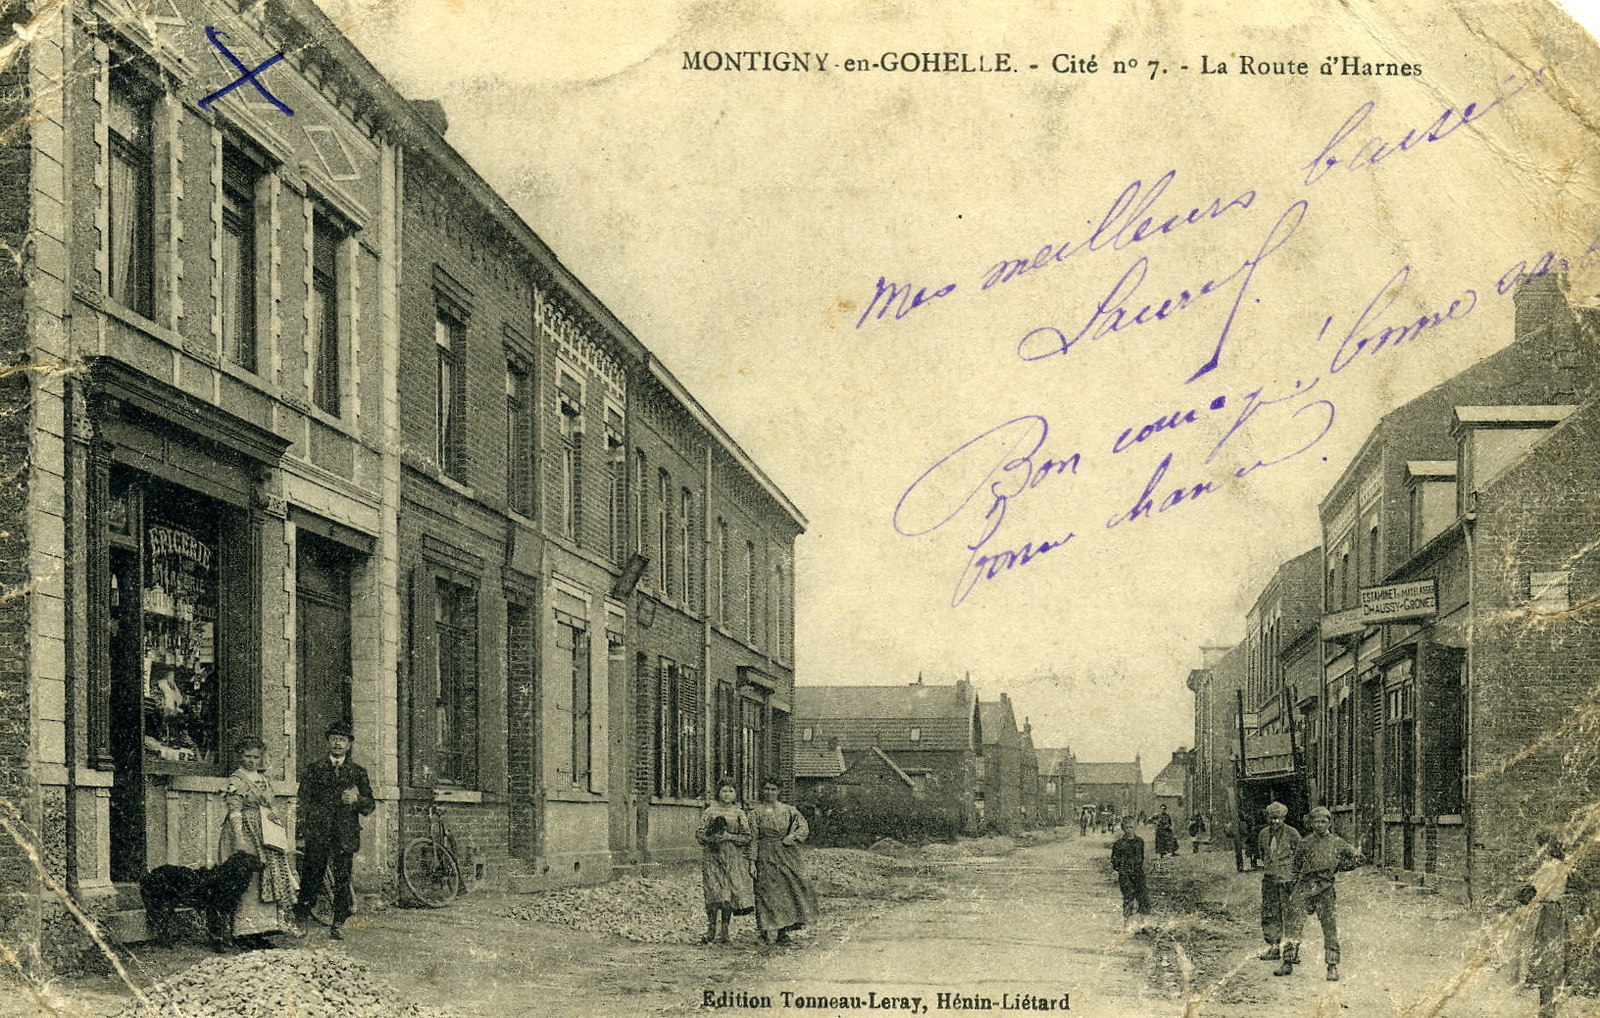 MONTIGNY-en-GOHELLE. - Cité nº 7. - La Route d'Harnes
Mes meilleurs baisers
Bon courage! bonne
bonne chance.
EPICERIE
ESTAMINET MATELASSIER
DHAUSSY-GRONEZ
Edition Tonneau-Leray, Hénin-Liétard